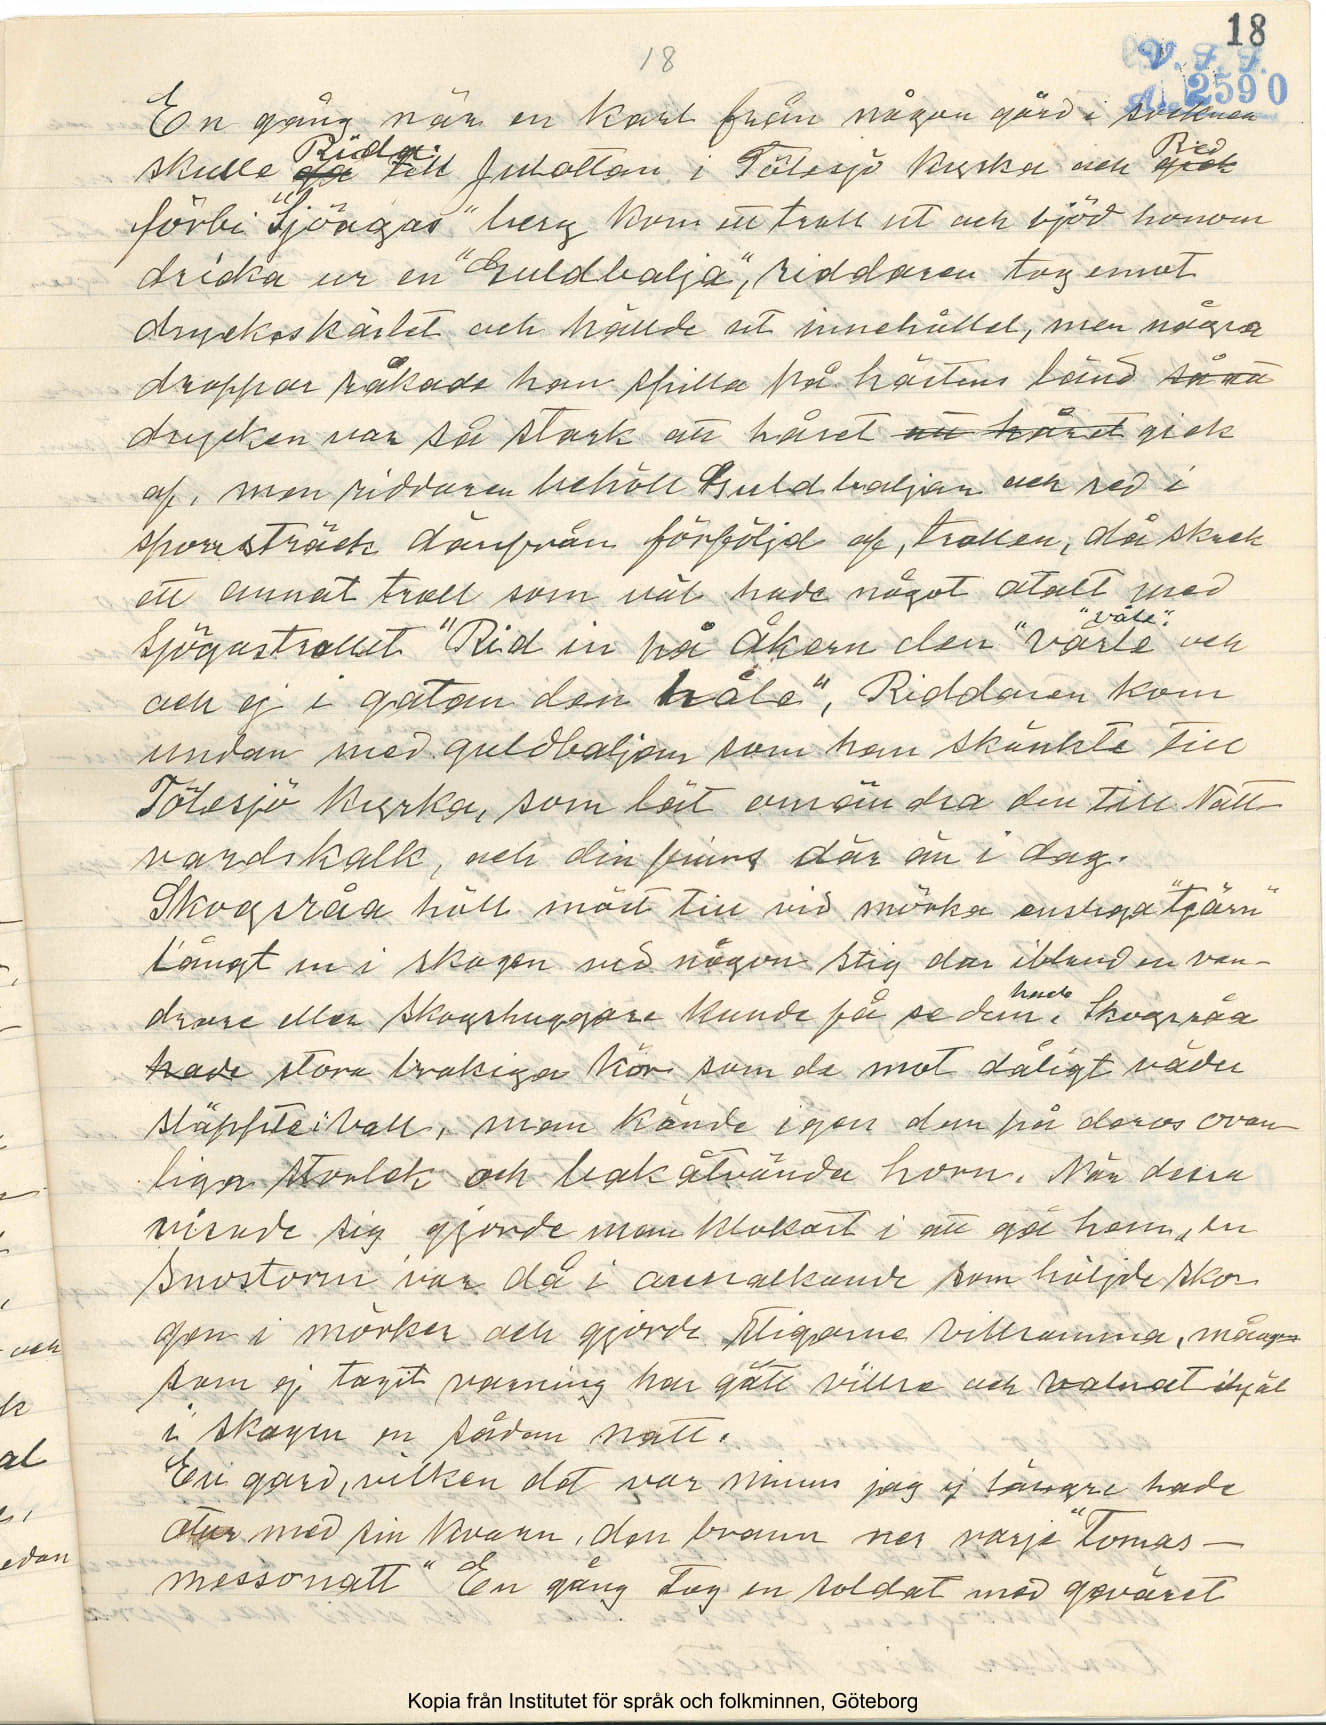 18
18
V. F. F.
A. 2590
En gång när en karl från någon gård i socknen
Rida. Red
skulle ga till Julottan i Tölesjö kyrka och gick
förbi "Sjöagas" berg kom ett troll ut och bjöd honom
dricka ur en "Guldbalja", riddaren tog emot
dryckeskärlet och hällde ut innehållet, men några
droppar råkade han spilla på hästens länd så att
drycken var så stark att håret att håret gick
af, men riddaren behöll Guldbaljan och red i
sporrsträck därifrån förföljd af, trollen, då skrek
ett annat troll som väl hade något otalt med
"våle".
Sjögastrollet "Rid in på åkern den "värle och
och ej i gatan den håle", Riddaren kom
undan med guldbaljan som han skänkte till
Tölesjö kyrka, som lät omändra den till Natt-
vardskalk, och din finns där än i dag.
Skogsråa höll mäst till vid mörka ensliga "tjärn"
Långt in i skogen ved någon stig dar ibland en van-
hade
drare eller skogshuggare kunde få se dem. Skogsråa
hade stora brokiga kor som de mot dåligt väder
släppte i vall, man kände igen dem på deras ovan-
liga storlek och bakåtvända horn. När dessa
visade sig gjorde man klokast i att gå hem, en
snöstorm var då i annalkande som höljde sko-
gen i mörker och gjorde stigarne villsamma, många
som ej tagit varning har gått vilse och valnat ihjäl
i skogen en sådan natt.
En gard, vilken det var minns jag ej längre hade
otur med sin kvarn, den brann ner varje "Tomas-
messonatt" En gång tog en soldat med geväret
och
k
al
edan
Kopia från Institutet för språk och folkminnen, Göteborg